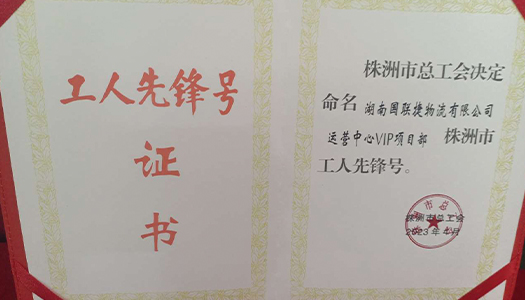 工人先锋号
证
书
株洲市总工会决定
命名 湖南国联捷物流有限公司
运营中心VIP项目部 株洲市
工人先锋号。
株洲市总工会
2023年4月